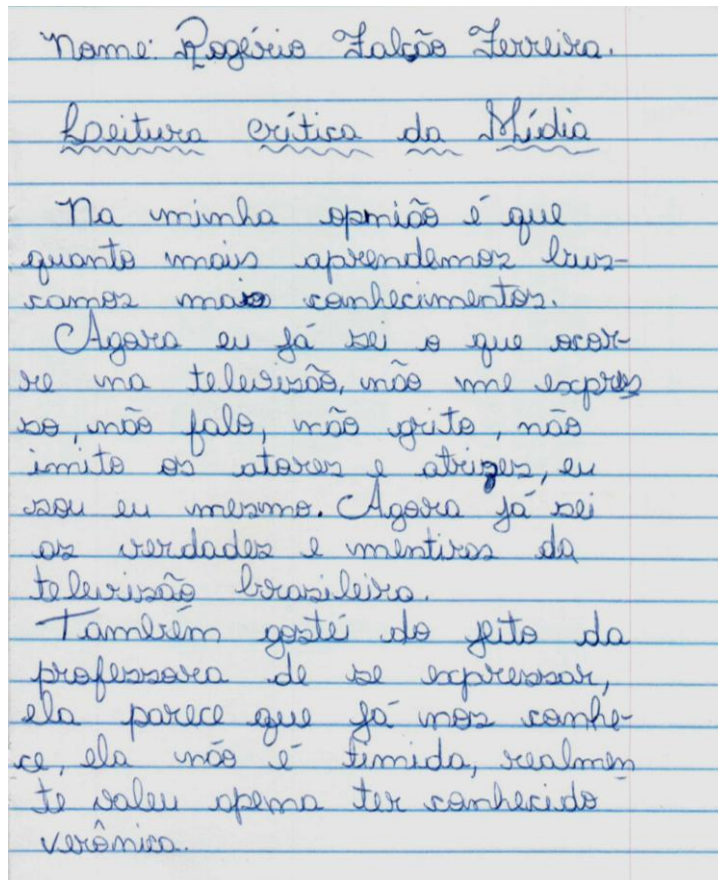 Nome: Rogério Falcão Ferreira.
Leitura crítica da Mídia
Na minha opnião é que
quanto mais aprendemos bus-
camos mais conhecimentos.
Agora eu já sei o que ocor-
re na televisão, não me expres
so, não falo, não grito, não
imito os atores e atrizes, eu
sou eu mesmo. Agora já sei
as verdades e mentiras da
televisão brasileira.
Também gostei do jeito da
professora de se expressar,
ela parece que já nos conhe-
ce, ela não é timida, realmen
te valeu apena ter conhecido
verônica.